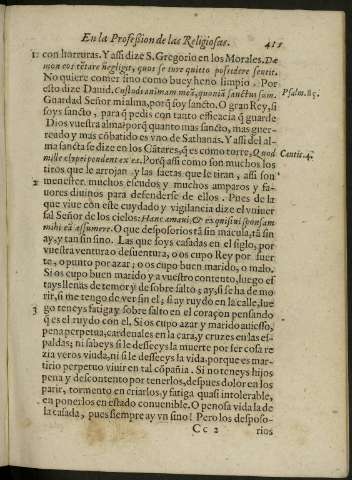 En la Profeßion de las Religiosas. 411
1 con harturas. Y aſsi dize S. Gregorio en los Morales. Dæ
mon eos tẽtare negligit, quos se iure quieto posidere sentit.
No quiere comer sino como buey heno limpio. Por
esto dize Dauid. Custodi animam meã, quoniã sanctus sum. Psalm. 85.
Guardad Señor mi alma, porq̃ soy sancto. O gran Rey, si
soys sancto, para q̃ pedis con tanto efficacia q̃ guarde
Dios vuestra alma? porq̃ quanto mas sancto, mas guer-
reado y más cõbatido es vno de Sathanas. Y assi del al-
ma sancta se dize en los Cãtares, q̃ es como torre, Quod Cantic. 4.
mille clypei pendent ex ea. Porq̃ assi como son muchos los
tiros que le arrojan y las saetas que le tiran, assi son
2 menester muchos escudos y muchos amparos y fa-
uores diuinos para defenderse de ellos. Pues de la
que viue con este cuydado y vigilancia dize el vniuer
sal Señor de los cielos: Hanc amaui, & exquisiui sponsam
mihi eã assumere. O que desposorios tã sin macula, tã sin
ay, y tan sin sino. Las que soys casadas en el siglo, por
vuestra ventura o desuentura, o os cupo Rey por suer
te, o punto por azar; o os cupo buen marido, o malo.
Si os cupo buen marido y a vuestro contento, luego es
tays llenas de temor y de sobre salto; ay, si se ha de mo
rir, si me tengo de ver sin el; si ay ruydo en la calle, lue
3 go teneys fatiga y sobre salto en el coraçon pensando
q̃ es el ruydo con el. Si os cupo azar y marido auiesso,
pena perpetua, cardenales en la cara, y cruzes en las es-
paldas; ni sabeys si le desseeys la muerte por ser cosa re
zia veros viuda, ni si le desseeys la vida, porque es mar-
tirio perpetuo viuir en tal cõpañia. Si no teneys hijos
pena y descontento por tenerlos, despues dolor en los
parir, tormento en criarlos, y fatiga quasi intolerable,
en ponerlos en estado conuenible. O penosa vida la de
la casada, pues siempre ay vn sino! Pero los desposo-
Cc 2 rios